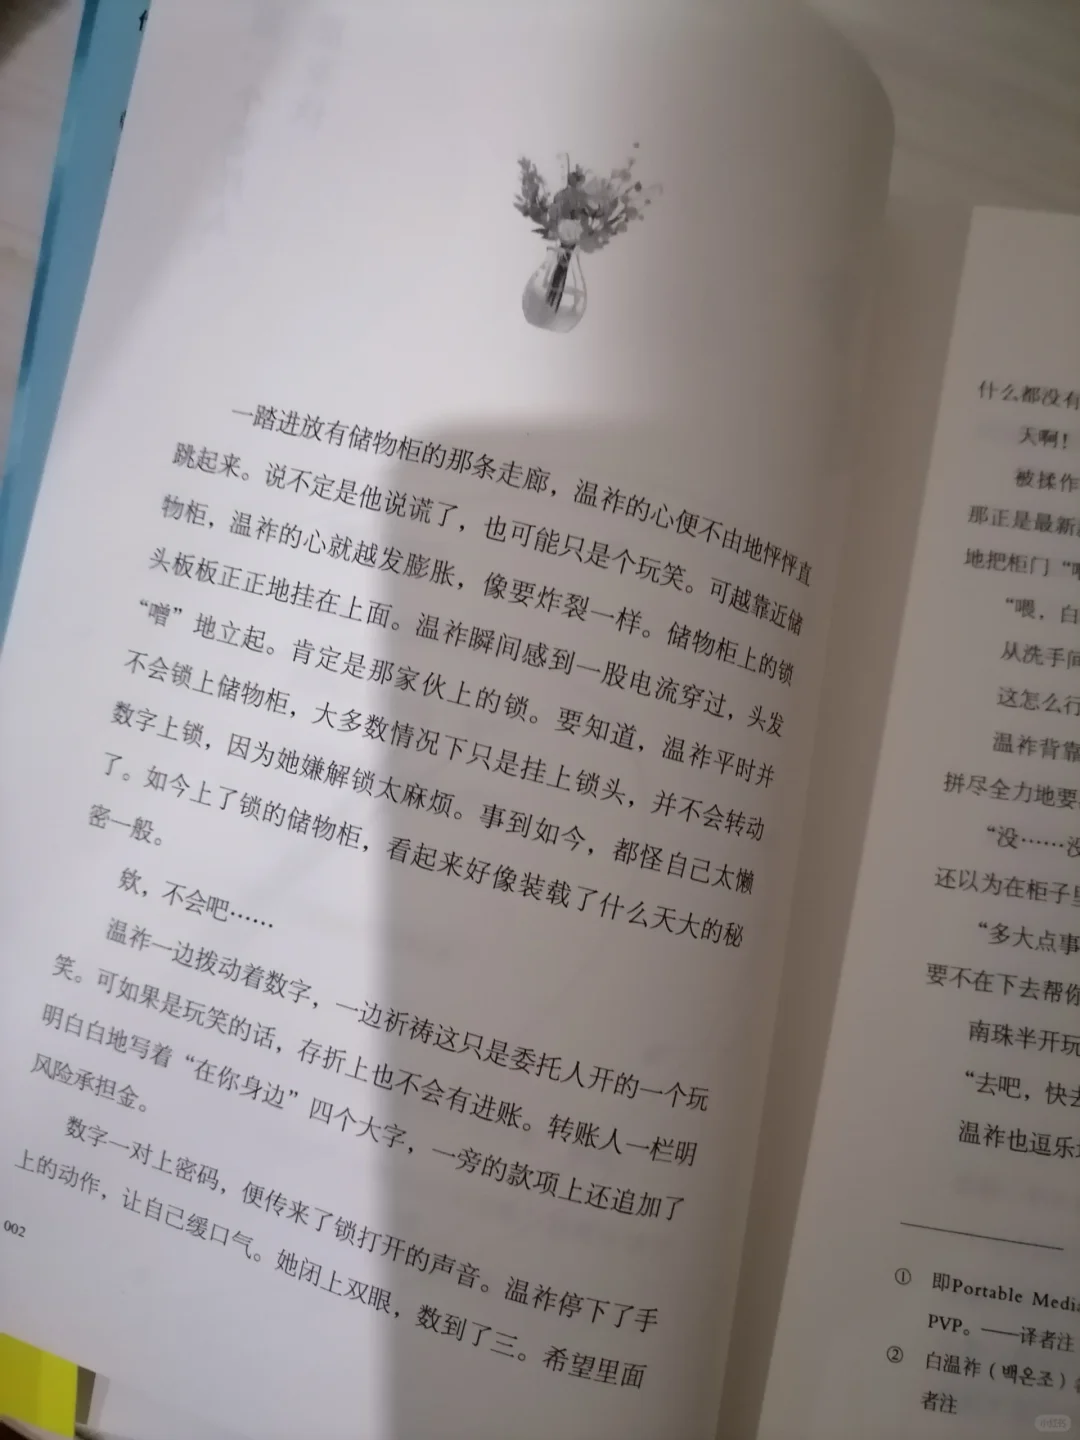 一踏进放有储物柜的那条走廊，温祚的心便不由地怦怦直
跳起来。说不定是他说谎了，也可能只是个玩笑。可越靠近储
物柜，温祚的心就越发膨胀，像要炸裂一样。储物柜上的锁
头板板正正地挂在上面。温祚瞬间感到一股电流穿过，头发
“噌”地立起。肯定是那家伙上的锁。要知道，温祚平时并
不会锁上储物柜，大多数情况下只是挂上锁头，并不会转动
数字上锁，因为她嫌解锁太麻烦。事到如今，都怪自己太懒
了。如今上了锁的储物柜，看起来好像装载了什么天大的秘
密一般。
欸，不会吧……
温祚一边拨动着数字，一边祈祷这只是委托人开的一个玩
笑。可如果是玩笑的话，存折上也不会有进账。转账人一栏明
明白白地写着“在你身边”四个大字，一旁的款项上还追加了
风险承担金。
数字一对上密码，便传来了锁打开的声音。温祚停下了手
上的动作，让自己缓口气。她闭上双眼，数到了三。希望里面
002
什么都没有
天啊！
被揉作
那正是最新
地把柜门“
“喂，白
从洗手间
这怎么行
温祚背靠
拼尽全力地要
“没……没
还以为在柜子里
“多大点事
要不在下去帮你
南珠半开玩
“去吧，快去
温祚也逗乐
① 即Portable Media
PVP。——译者注
② 白温祚（백온조）
者注
小红书